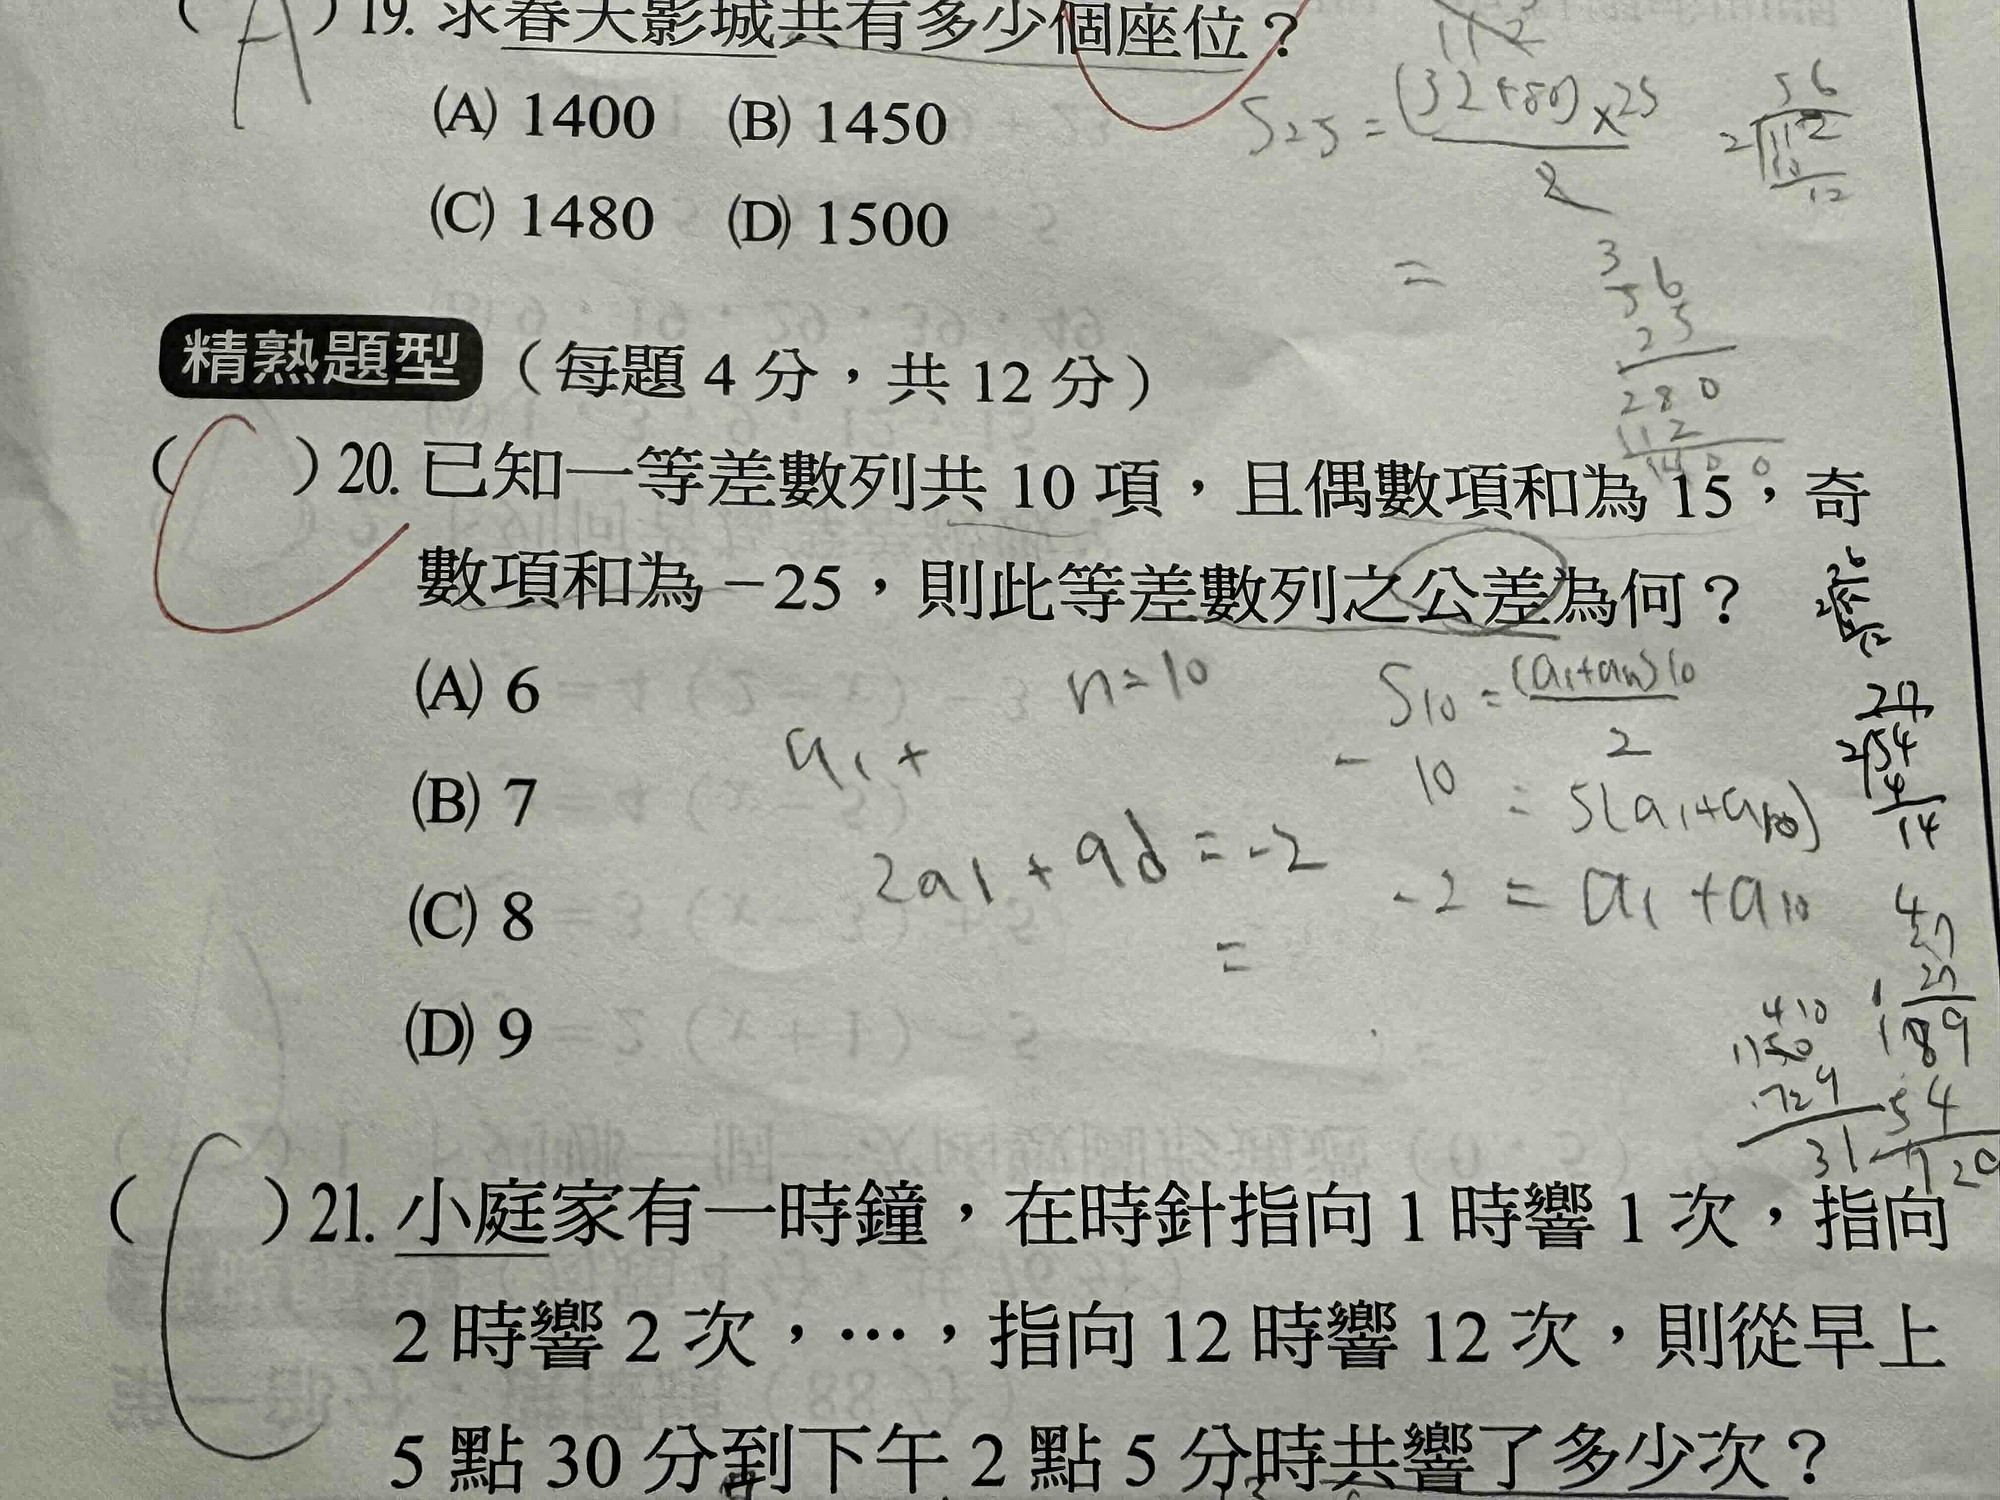 ( A ) 19. 求春天影城共有多少個座位？
(A) 1400 (B) 1450
(C) 1480 (D) 1500
S25 = (32+80)×25
2
=
56
2 112
10
12
56
25
280
112
1400
精熟題型 （每題 4 分，共 12 分）
( ) 20. 已知一等差數列共 10 項，且偶數項和為 15，奇
數項和為 −25，則此等差數列之公差為何？
(A) 6
(B) 7
(C) 8
(D) 9
n=10
a1 +
2a1 + 9d = -2
=
S10 = (a1+an)10
2
-10 = 5(a1+a10)
-2 = a1 + a10
27
2 54
4
14
47
27
189
( ) 21. 小庭家有一時鐘，在時針指向 1 時響 1 次，指向
2 時響 2 次，…，指向 12 時響 12 次，則從早上
5 點 30 分到下午 2 點 5 分時共響了多少次？